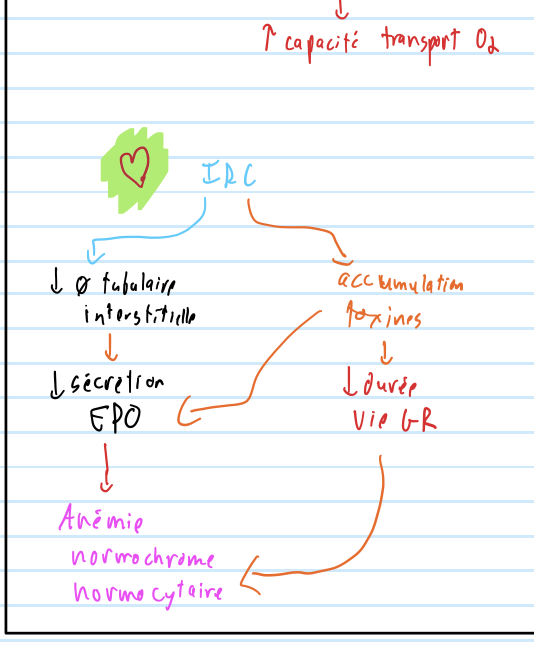 ↓
↑ capacité transport O₂
IRC
↓ ∅ tubulaire
interstitielle
accumulation
toxines
↓ sécrétion
EPO
↓ durée
vie GR
Anémie
normochrome
normocytaire